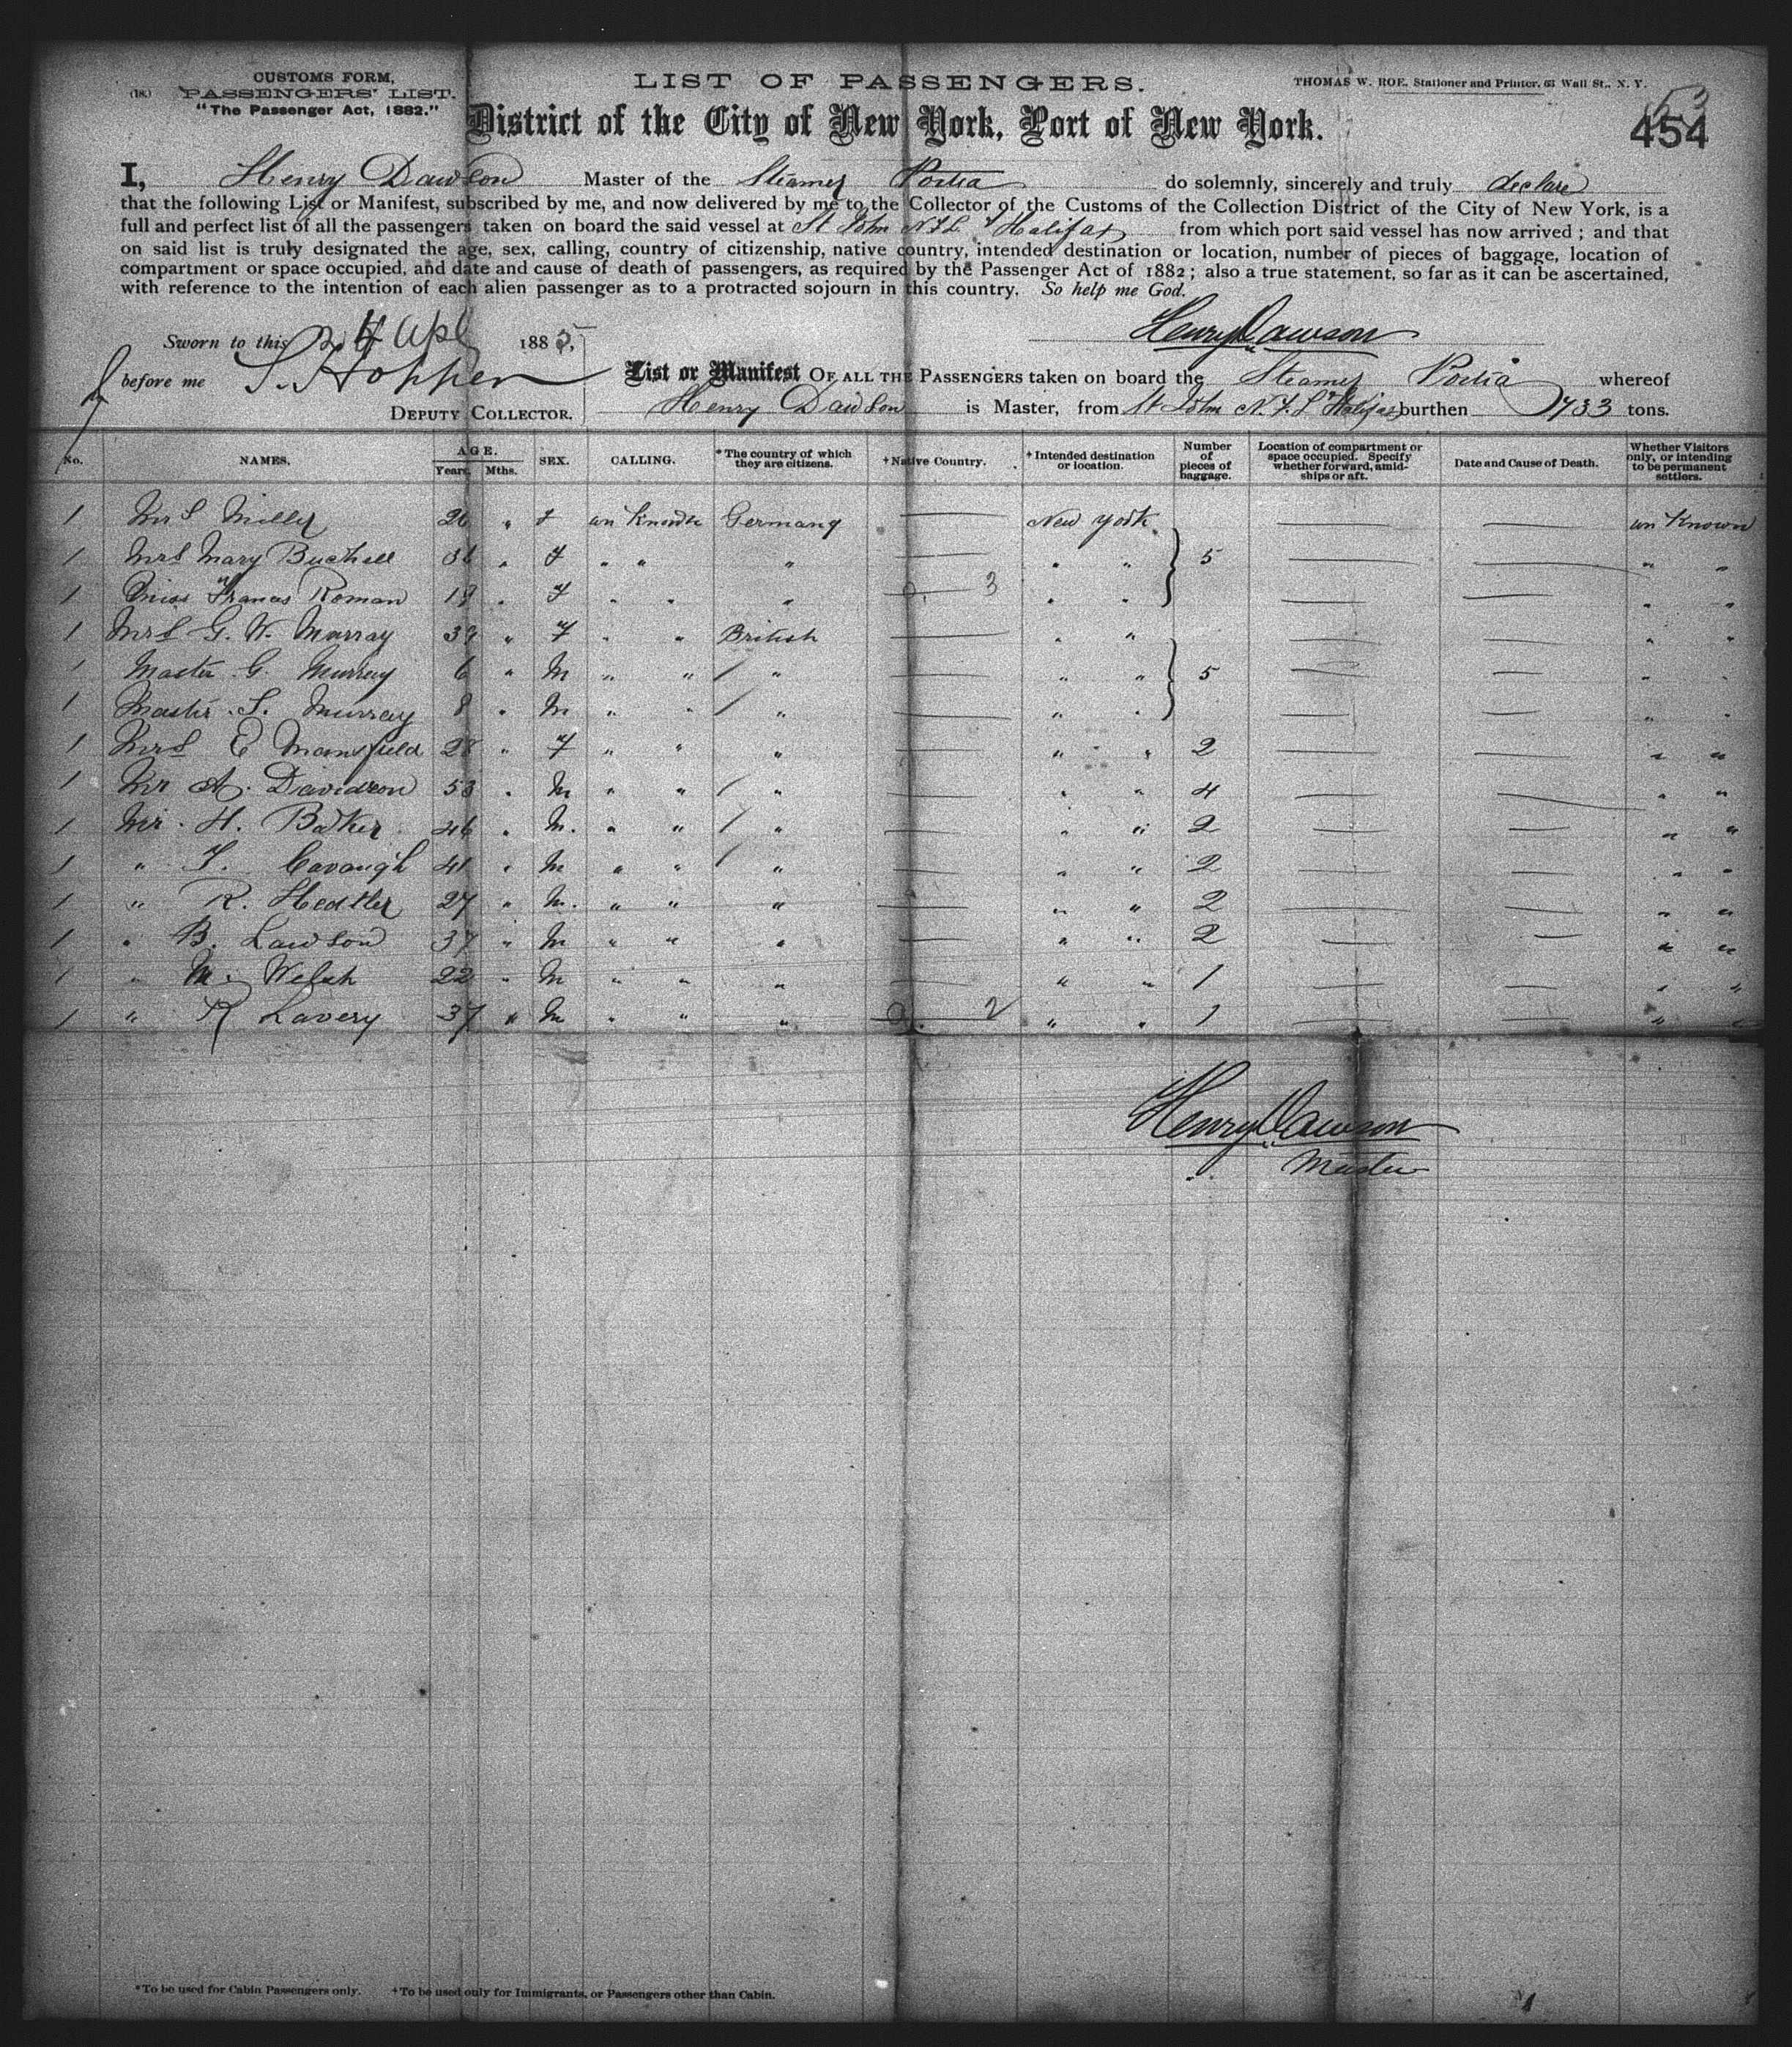 CUSTOMS FORM,
(18.) PASSENGERS' LIST.
"The Passenger Act, 1882."
LIST OF PASSENGERS.
THOMAS W. ROE, Stationer and Printer, 63 Wall St., N. Y.
53
454
District of the City of New York, Port of New York.
I, Henry Dawson Master of the Steamer Portia do solemnly, sincerely and truly declare
that the following List or Manifest, subscribed by me, and now delivered by me to the Collector of the Customs of the Collection District of the City of New York, is a
full and perfect list of all the passengers taken on board the said vessel at St John N.F.L & Halifax from which port said vessel has now arrived; and that
on said list is truly designated the age, sex, calling, country of citizenship, native country, intended destination or location, number of pieces of baggage, location of
compartment or space occupied, and date and cause of death of passengers, as required by the Passenger Act of 1882; also a true statement, so far as it can be ascertained,
with reference to the intention of each alien passenger as to a protracted sojourn in this country. So help me God.
Henry Dawson
Sworn to this 24 Apl 1885,
before me S. Hopper
DEPUTY COLLECTOR.
List or Manifest OF ALL THE PASSENGERS taken on board the Steamer Portia whereof
Henry Dawson is Master, from St John N.F.L & Halifax burthen 733 tons.
No. NAMES. AGE. Years. Mths. SEX. CALLING. *The country of which they are citizens. †Native Country. †Intended destination or location. Number of pieces of baggage. Location of compartment or space occupied. Specify whether forward, amidships or aft. Date and Cause of Death. Whether Visitors only, or intending to be permanent settlers.
1 Mrs Miller 26 " F un Known Germany — New York — — un Known
1 Mrs Mary 36 " F " " " — " " 5 — — " "
1 Miss Frances Roman 18 " F " " " 3 " " — — " "
1 Mrs G. W. Murray 39 " F " " British — " " — — " "
1 Master G. Murray 6 " M " " / " — " " 5 — — " "
1 Master S. Murray 8 " M " " / " — " " — — " "
1 Mrs E Mansfield 28 " F " " " — " " 2 — — " "
1 Mr A. Davidson 53 " M " " / " — " " 4 — — " "
1 Mr. H. Baker 46 " M. " " / " — " " 2 — — " "
1 " F. Cavaugh 41 " M " " / " — " " 2 — — " "
1 " R. 27 " M. " " " — " " 2 — — " "
1 " B. Lawson 37 " M " " " — " " 2 — — " "
1 " M. Welsh 22 " M " " " — " " 1 — — " "
1 " R Lavery 37 " M " " " 2 " " 1 — — " "
Henry Dawson
Master
*To be used for Cabin Passengers only. †To be used only for Immigrants, or Passengers other than Cabin.